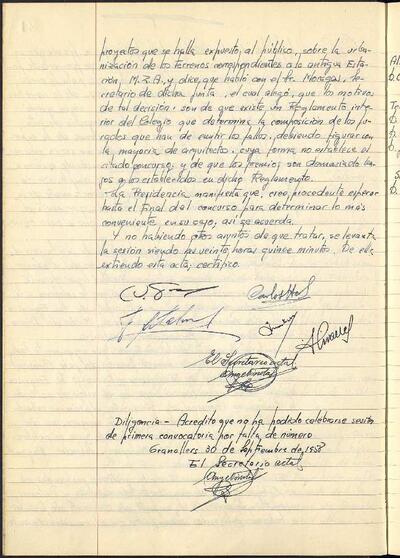 proyectos que se halla expuesto, al público, sobre la urba-
nización de los terrenos correspondientes a la antigua Esta-
ción, M.Z.A, y dice, que habló con el Sr. Moragas, Se-
cretario de dicha Junta, el cual alegó, que los motivos
de tal decisión, son de que existe un Reglamento inte-
rior del Colegio que determina la composición de los ju-
rados que han de emitir los fallos, debiendo figurar en
la mayoría de arquitectos, cuya forma no establece el
citado concurso; y de que los premios, son demasiado ba-
jos a los establecidos en dicho Reglamento.
La Presidencia manifiesta que cree procedente esperar
hasta el Final del concurso para determinar lo más
conveniente en su caso, así se acuerda.
Y no habiendo otros asuntos de que tratar, se levanta
la sesión siendo las veinte horas quince minutos. De ella
extiendo esta acta, certifico.
El Secretario actal
Diligencia - Acredito que no ha podido celebrarse sesión
de primera convocatoria por falta de número
Granollers 30 de Septiembre de 1958
El Secretario actal